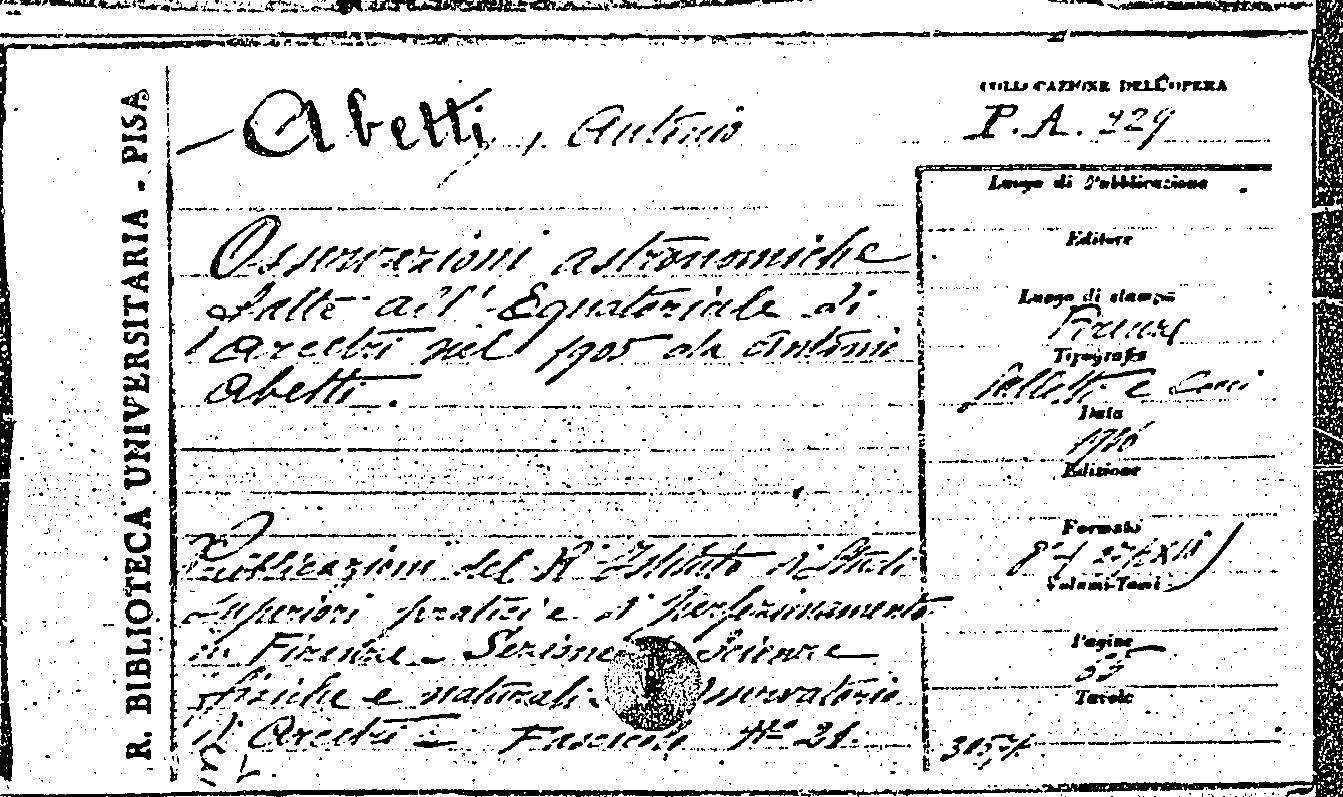 R. BIBLIOTECA UNIVERSITARIA - PISA
Abetti, Antonio
COLLOCAZIONE DELL'OPERA
P.A. 229
Osservazioni astronomiche
fatte all'Equatoriale di
Arcetri nel 1905 da Antonio
Abetti.
Pubblicazioni del R. Istituto di Studi
Superiori pratici e di perfezionamento
in Firenze - Sezione Scienze
fisiche e naturali. Osservatorio
di Arcetri - Fascicolo No 21.
Luogo di Pubblicazione
Editore
Luogo di stampa
Firenze
Tipografia
e
Data
Edizione
Formato
Volumi-Tomi
Pagine
Tavole